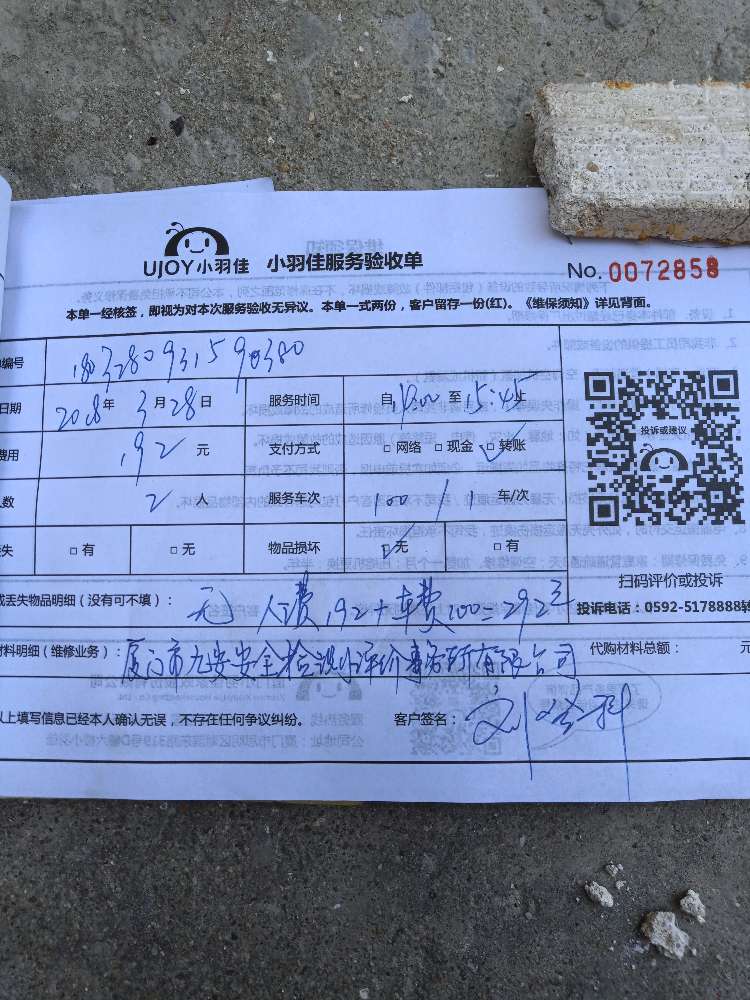 UJOY小羽佳 小羽佳服务验收单
No. 0072858
本单一经核签，即视为对本次服务验收无异议。本单一式两份，客户留存一份(红)。《维保须知》详见背面。
编号 1803280931590380
日期 2018年 3月28日 服务时间 自 至15:45止
费用 192 元 支付方式 □网络 □现金 □转账
人数 2 人 服务车次 100 / 1 车/次
失 □有 □无 物品损坏 □无 □有
投诉或建议
扫码评价或投诉
投诉电话：0592-5178888转
或丢失物品明细（没有可不填）： 无 人工费192+车费100=292元
材料明细（维修业务）： 厦门市九安安全检测评价事务所有限公司 代购材料总额： 元
以上填写信息已经本人确认无误，不存在任何争议纠纷。 客户签名：